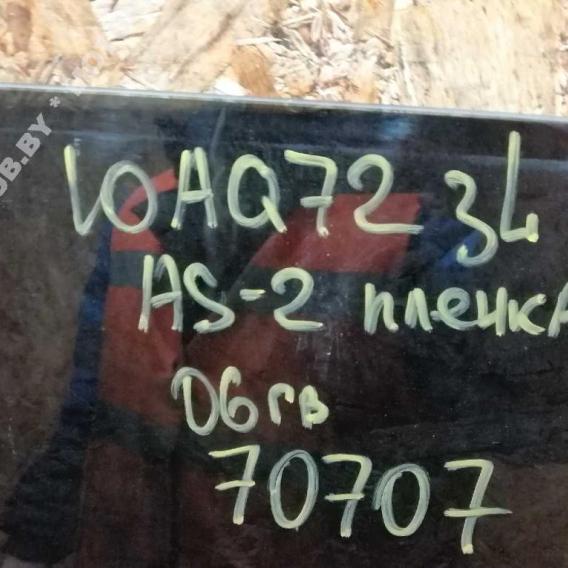 OB.BY *
10AQ72 3L
AS-2 пленка
06гв
70707